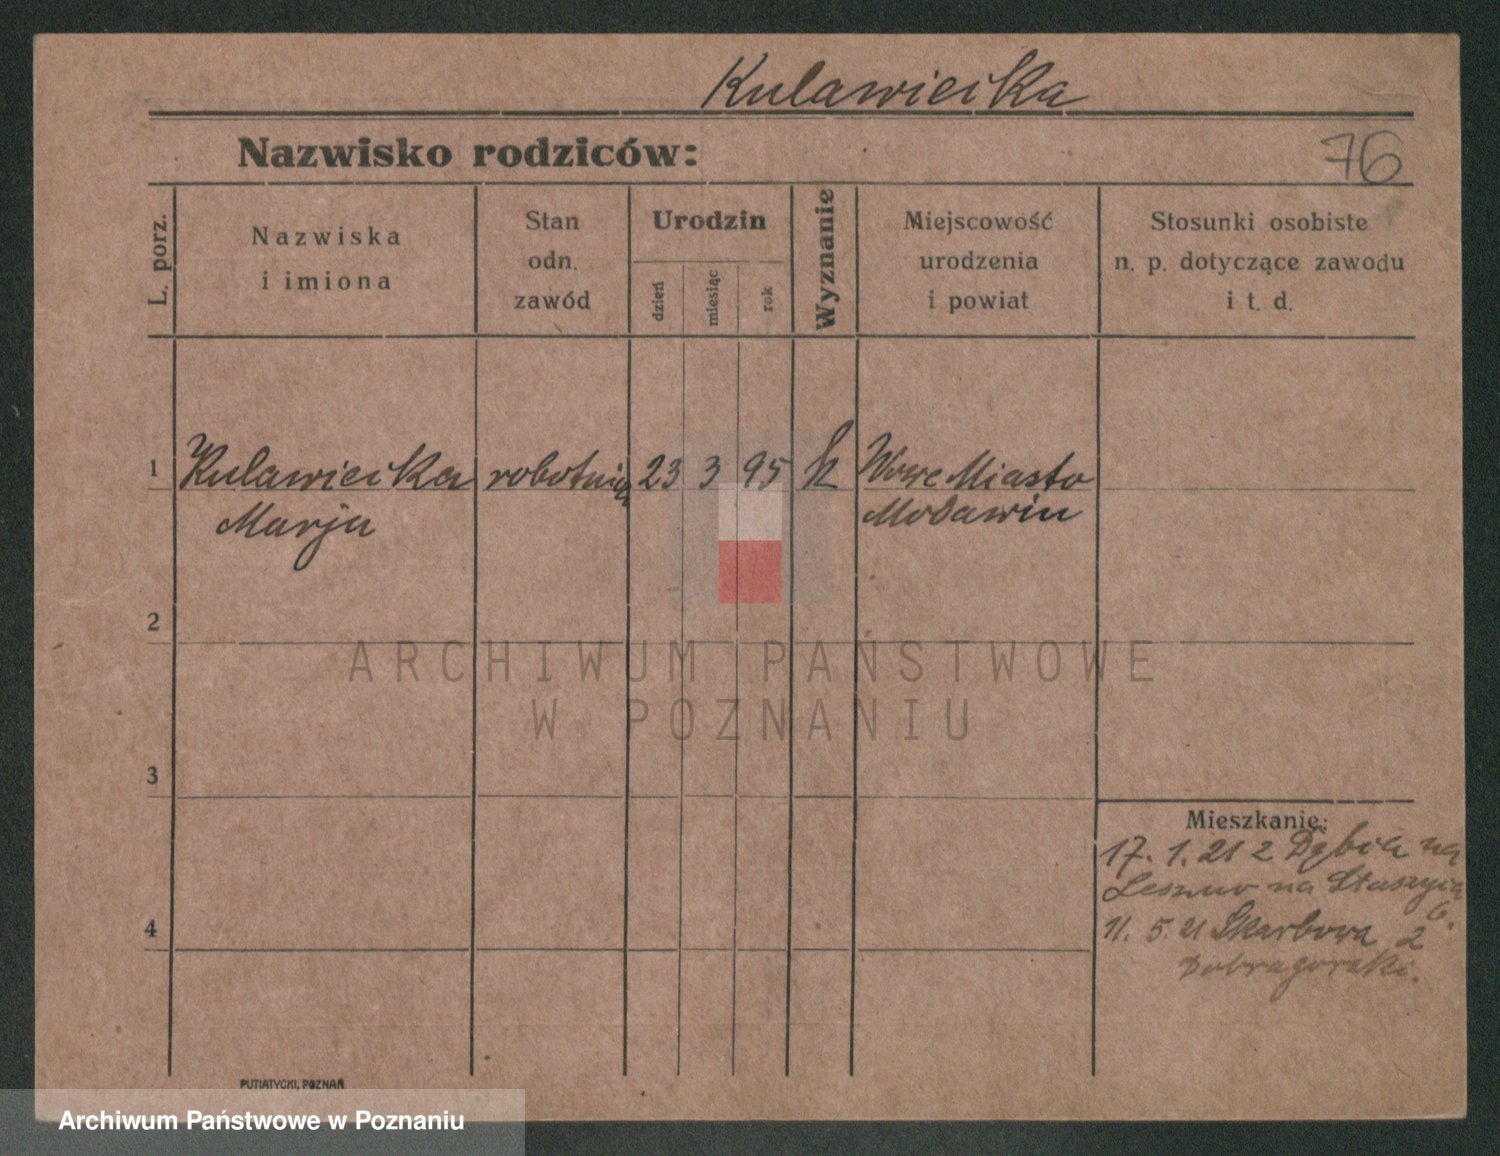 Kulawiecka
Nazwisko rodziców:
76
L. porz.
Nazwiska
i imiona
Stan
odn.
zawód
Urodzin
dzień
miesiąc
rok
Wyznanie
Miejscowość
urodzenia
i powiat
Stosunki osobiste
n. p. dotyczące zawodu
i t. d.
1
Kulawiecka
Marja
23
3
95
k
Nowe Miasto
2
ARCHIWUM PAŃSTWOWE
W POZNANIU
3
Mieszkanie:
17. 1. 21 z na
na
6.
4
11. 5. 21 Skarbowa 2
PUTIATYCKI, POZNAŃ
Archiwum Państwowe w Poznaniu